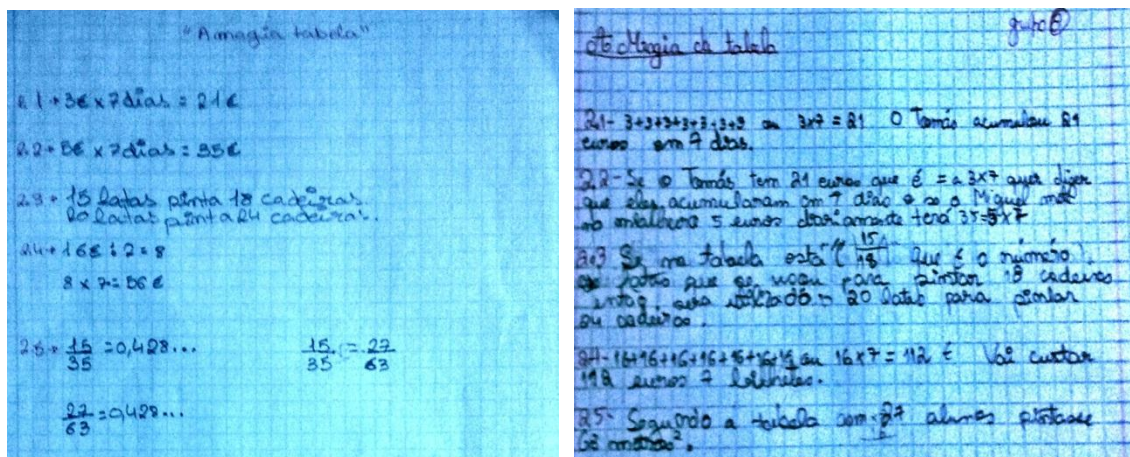 "A magia tabela"
2.1 → 3€ x 7 dias = 21€
2.2 → 5€ x 7 dias = 35€
2.3 → 15 latas pinta 18 cadeiras
20 latas pinta 24 cadeiras.
2.4 → 16€ : 2 = 8
8 x 7 = 56 €
2.5 → 15/35 = 0,428... 15/35 = 27/63
27/63 = 0,428...
grupo
A Magia da tabela
2.1 - 3+3+3+3+3+3+3 ou 3x7 = 21 O Tomás acumulou 21
euros em 7 dias.
2.2 - Se o Tomás tem 21 euros que é = a 3x7 quer dizer
que eles acumularam em 7 dias e se o Miguel
no mialheiro 5 euros diariamente terá 35=5x7
2.3 Se na tabela está "(15/18)" que é o número
latas que se usou para pintar 18 cadeiras
então será utilizado 20 latas para pintar
24 cadeiras.
2.4 - 16+16+16+16+16+16+16 ou 16x7 = 112 € Vai custar
112 euros 7 bilhetes.
2.5 - Segundo a tabela com 27 alunos pintasse
63 metros².